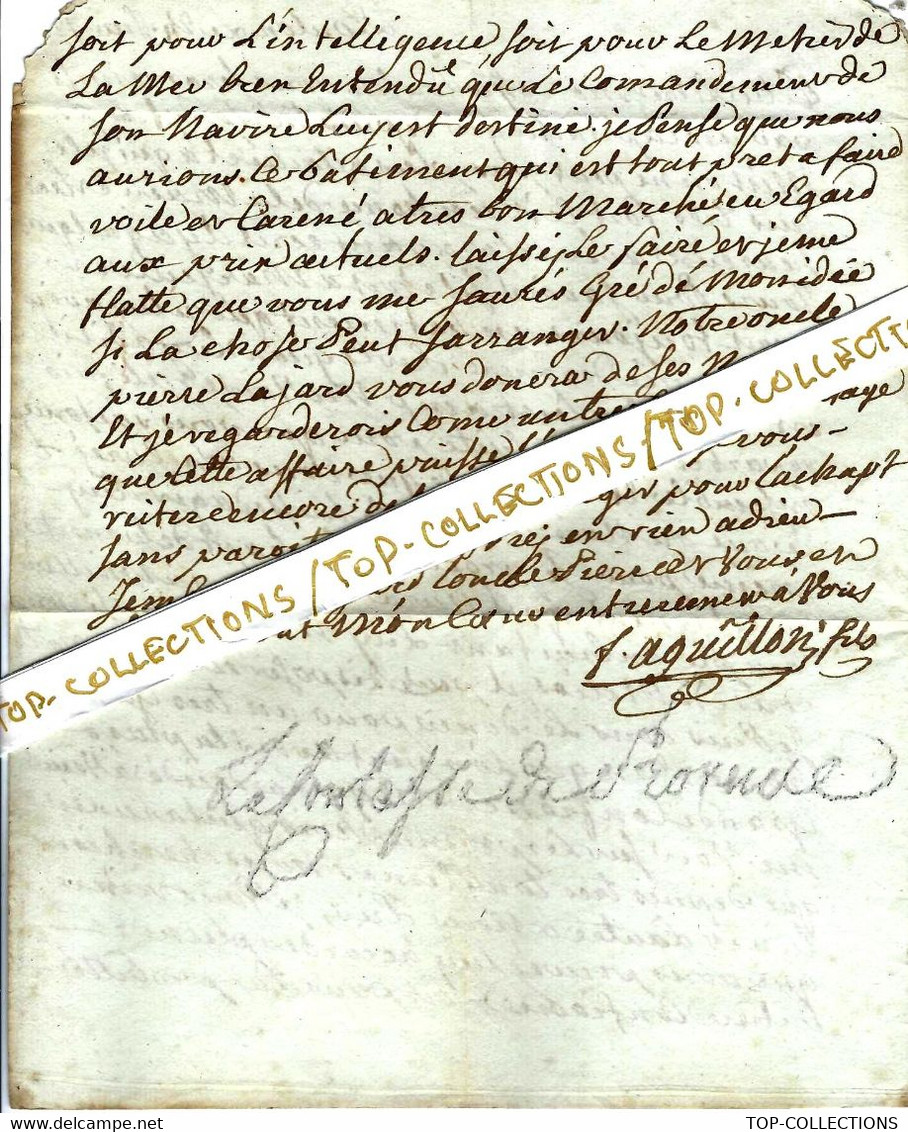 soit pour L'intelligence, soit pour Le Metier de
La Mer bien Entendû que Le Comandement de
son Navire Luy est destiné. je Pense que nous
aurions. Ce batiment qui est tout pret a faire
voile et Carené a tres bon Marché, eu Egard
aux prix actuels. laissés Le faire et je me
flatte que vous me saurés Gré de Mon idée
si La chose Peut sarranger. Notre oncle
pierre Lajard vous donera de ses
Et je regarderois Come un tres
que Cette affaire puisse
reitere encore de vous
sans paroitre en rien adieu
oncle Pierre et Vous et
Mon entierement à Vous
f. aguillon fils
TOP-COLLECTIONS / TOP-COLLECTIONS / TOP-COLLECTIONS / TOP-COLLECTIONS
de Provence
TOP-COLLECTIONS